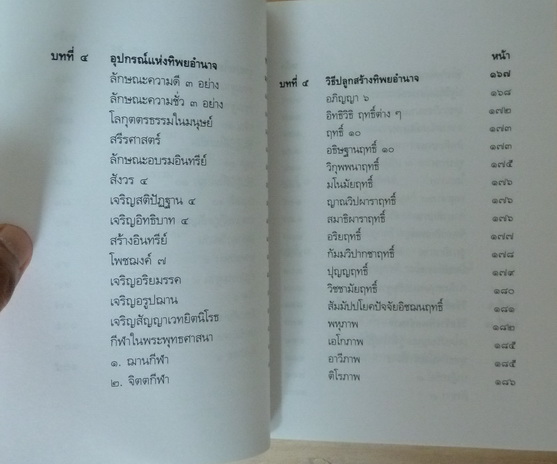 บทที่ ๔ อุปกรณ์แห่งทิพยอำนาจ
ลักษณะความดี ๓ อย่าง
ลักษณะความชั่ว ๓ อย่าง
โลกุตตรธรรมในมนุษย์
สรีรศาสตร์
ลักษณะอบรมอินทรีย์
สังวร ๔
เจริญสติปัฏฐาน ๔
เจริญอิทธิบาท ๔
สร้างอินทรีย์
โพชฌงค์ ๗
เจริญอริยมรรค
เจริญอรูปฌาน
เจริญสัญญาเวทยิตนิโรธ
กีฬาในพระพุทธศาสนา
๑. ฌานกีฬา
๒. จิตตกีฬา
หน้า
บทที่ ๕ วิธีปลูกสร้างทิพยอำนาจ ๑๖๗
อภิญญา ๖ ๑๖๘
อิทธิวิธี ฤทธิ์ต่าง ๆ ๑๗๒
ฤทธิ์ ๑๐ ๑๗๓
อธิษฐานฤทธิ์ ๑๐ ๑๗๓
วิกุพพนาฤทธิ์ ๑๗๕
มโนมัยฤทธิ์ ๑๗๖
ญาณวิปผาราฤทธิ์ ๑๗๖
สมาธิผาราฤทธิ์ ๑๗๖
อริยฤทธิ์ ๑๗๗
กัมมวิปากชาฤทธิ์ ๑๗๘
ปุญญฤทธิ์ ๑๗๙
วิชชามัยฤทธิ์ ๑๘๐
สัมมัปปโยคปัจจัยอิชฌนฤทธิ์ ๑๘๑
พหุภาพ ๑๘๒
เอโกภาพ ๑๘๕
อาวีภาพ ๑๘๕
ติโรภาพ ๑๘๖